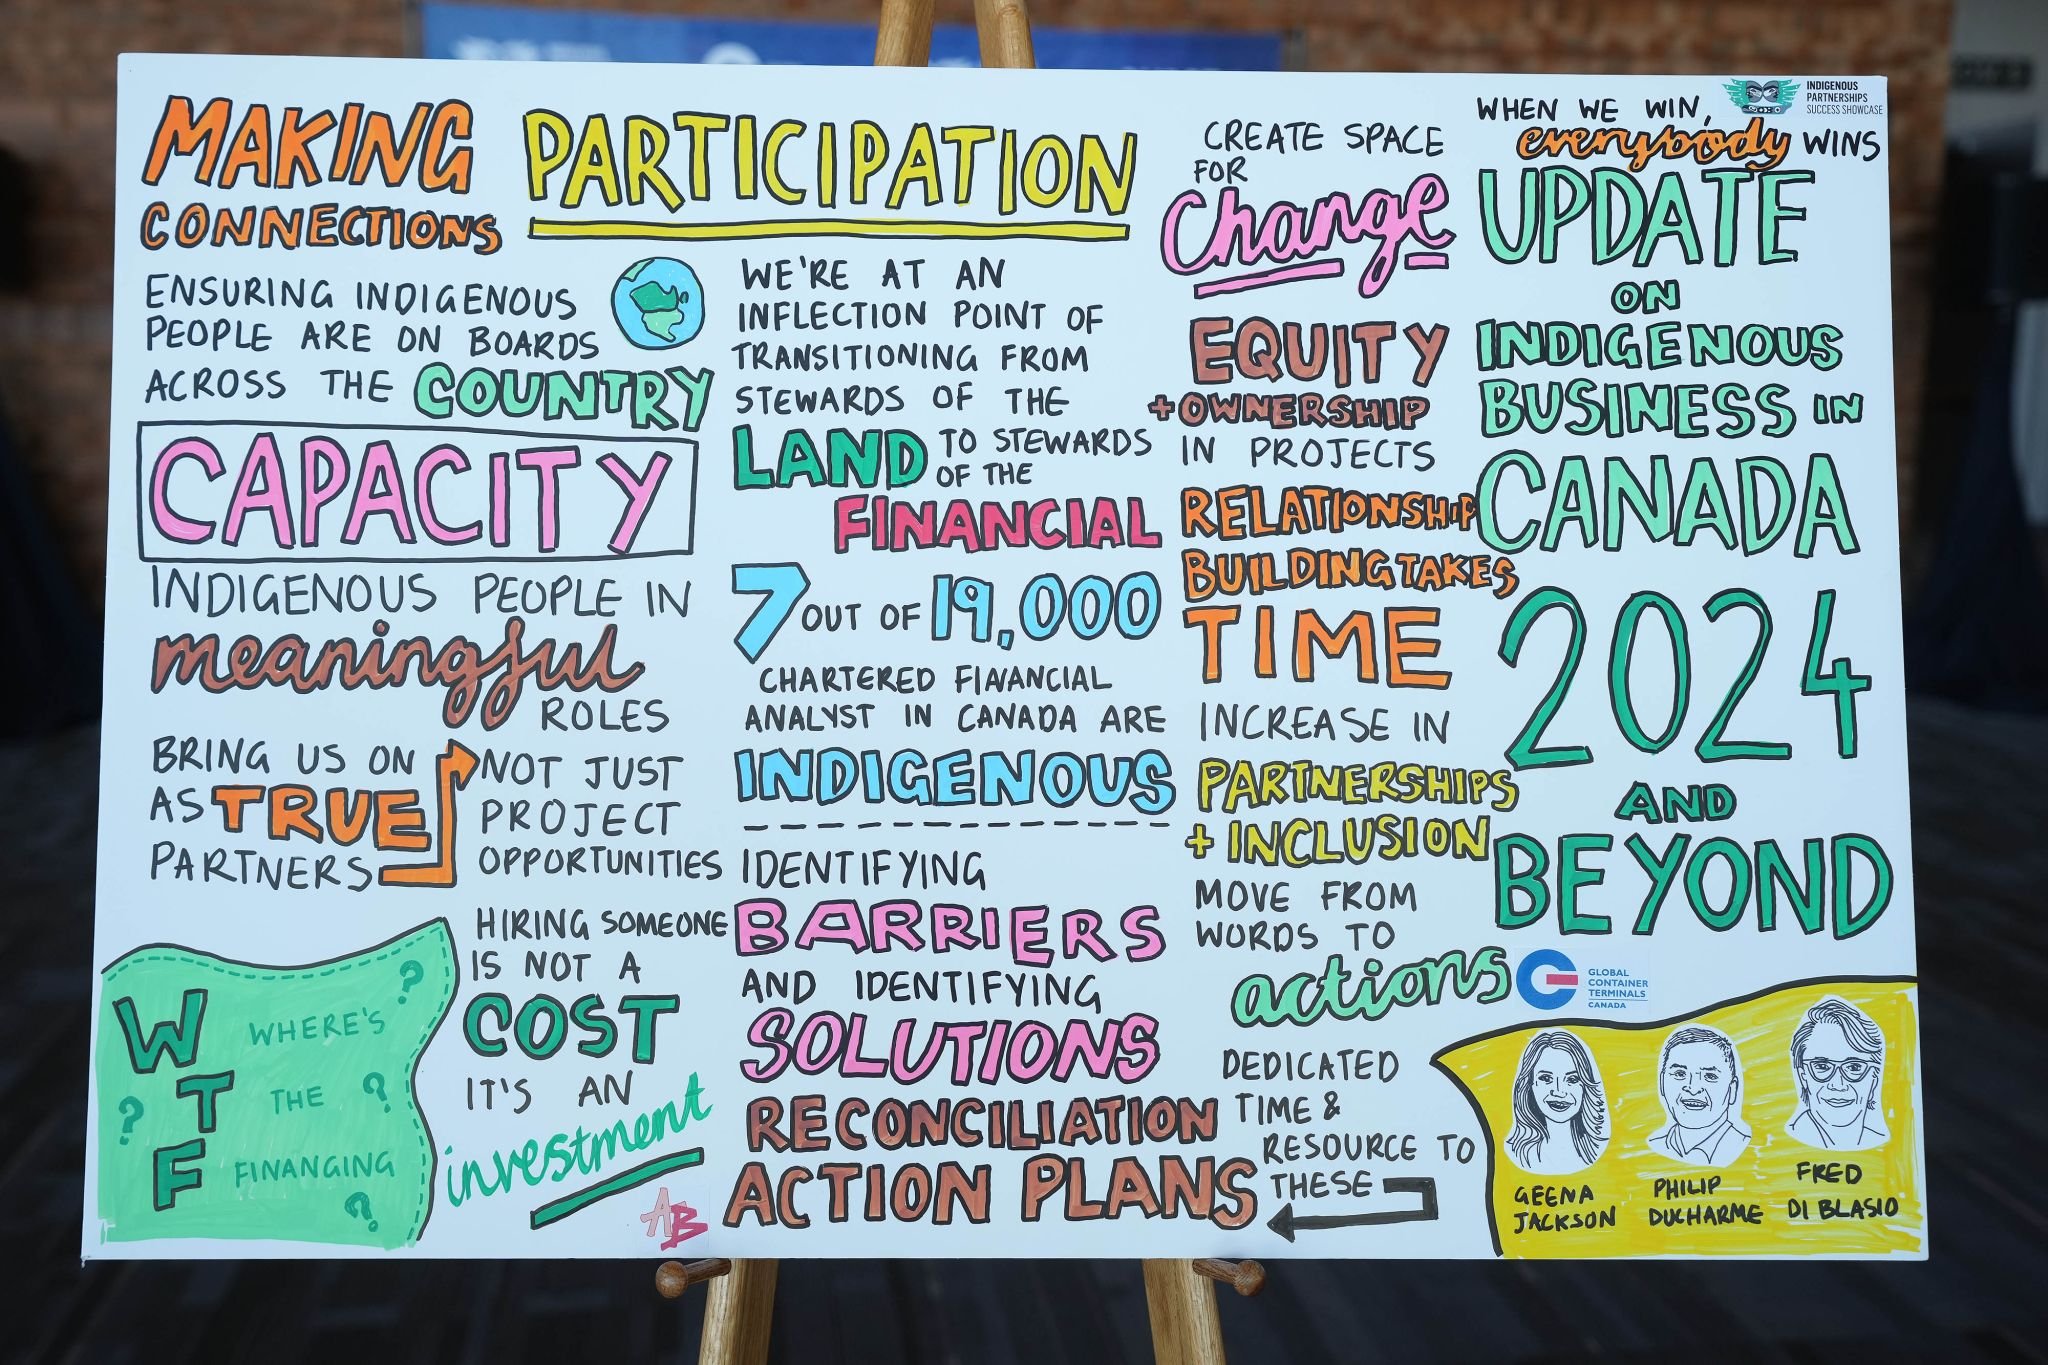 MAKING
CONNECTIONS
ENSURING INDIGENOUS
PEOPLE ARE ON BOARDS
ACROSS THE COUNTRY
CAPACITY
INDIGENOUS PEOPLE IN
meaningful
ROLES
BRING US ON
AS TRUE
PARTNERS
NOT JUST
PROJECT
OPPORTUNITIES
WTF
WHERE'S ?
? THE ?
FINANCING
?
HIRING SOMEONE
IS NOT A
COST
IT'S AN
investment
AB
PARTICIPATION
WE'RE AT AN
INFLECTION POINT OF
TRANSITIONING FROM
STEWARDS OF THE
LAND TO STEWARDS
OF THE
FINANCIAL
7 OUT OF 19,000
CHARTERED FINANCIAL
ANALYST IN CANADA ARE
INDIGENOUS
IDENTIFYING
BARRIERS
AND IDENTIFYING
SOLUTIONS
RECONCILIATION
ACTION PLANS
CREATE SPACE
FOR
Change
EQUITY
+ OWNERSHIP
IN PROJECTS
RELATIONSHIP
BUILDING TAKES
TIME
INCREASE IN
PARTNERSHIPS
+ INCLUSION
MOVE FROM
WORDS TO
actions
DEDICATED
TIME &
RESOURCE TO
THESE
WHEN WE WIN,
everybody WINS
INDIGENOUS
PARTNERSHIPS
SUCCESS SHOWCASE
UPDATE
ON
INDIGENOUS
BUSINESS IN
CANADA
2024
AND
BEYOND
GLOBAL
CONTAINER
TERMINALS
CANADA
GEENA
JACKSON
PHILIP
DUCHARME
FRED
DI BLASIO